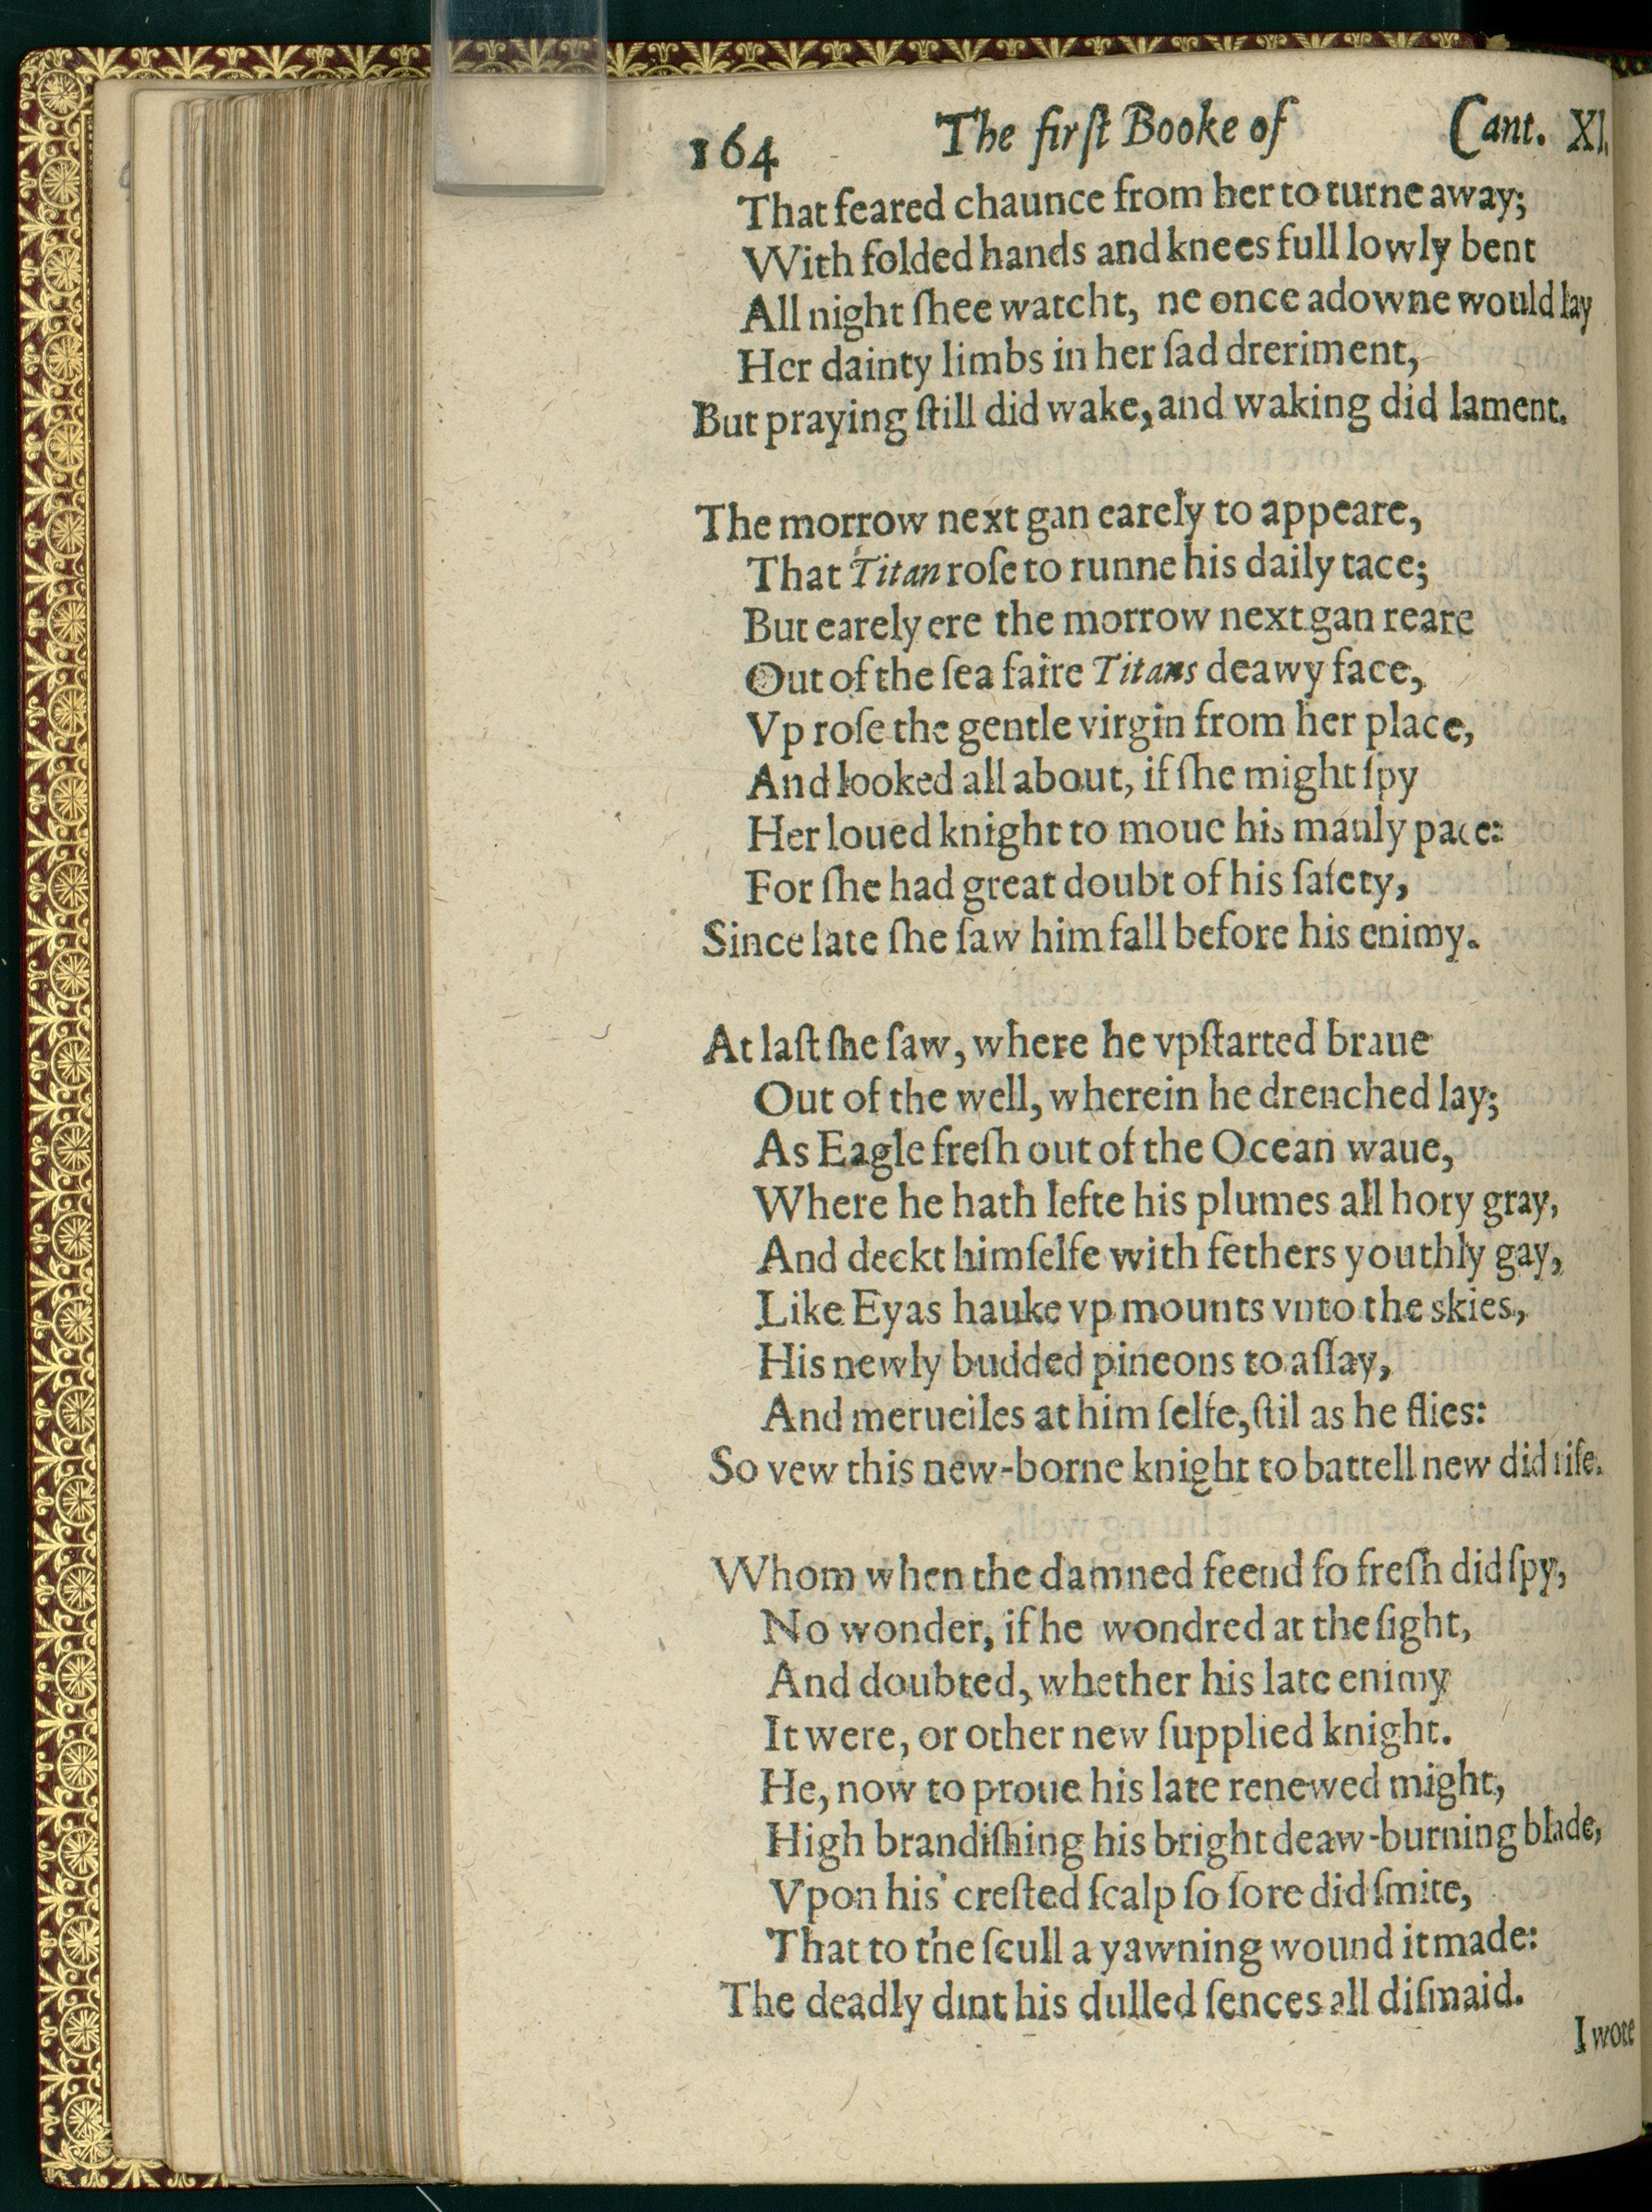 164 The firſt Booke of Cant. XI.
That feared chaunce from her to turne away;
With folded hands and knees full lowly bent
All night ſhee watcht, ne once adowne would lay
Her dainty limbs in her ſad dreriment,
But praying ſtill did wake, and waking did lament.
The morrow next gan earely to appeare,
That Titan roſe to runne his daily race;
But earely ere the morrow next gan reare
Out of the ſea faire Titans deawy face,
Vp roſe the gentle virgin from her place,
And looked all about, if ſhe might ſpy
Her loued knight to moue his manly pace:
For ſhe had great doubt of his ſafety,
Since late ſhe ſaw him fall before his enimy.
At laſt ſhe ſaw, where he vpſtarted braue
Out of the well, wherein he drenched lay;
As Eagle freſh out of the Ocean waue,
Where he hath lefte his plumes all hory gray,
And deckt himſelfe with fethers youthly gay,
Like Eyas hauke vp mounts vnto the skies,
His newly budded pineons to aſſay,
And merueiles at him ſelfe, ſtil as he flies:
So vew this new-borne knight to battell new did riſe.
Whom when the damned feend ſo freſh did ſpy,
No wonder, if he wondred at the ſight,
And doubted, whether his late enimy
It were, or other new ſupplied knight.
He, now to proue his late renewed might,
High brandiſhing his bright deaw-burning blade,
Vpon his creſted ſcalp ſo ſore did ſmite,
That to the ſcull a yawning wound it made:
The deadly dint his dulled ſences all diſmaid.
I wote